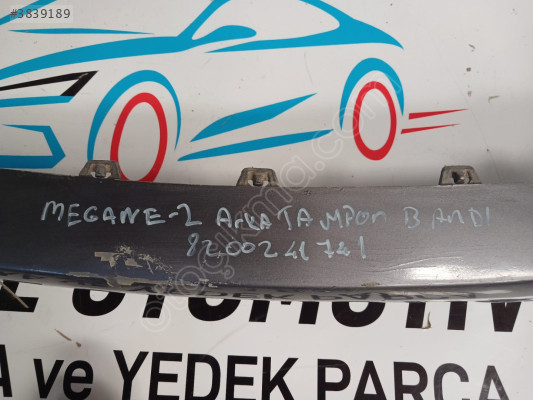 #3839189
MEGANE-2 ArkA TAMPON BANDI
8200241741
OTOMOTİV
A ve YEDEK PARÇA